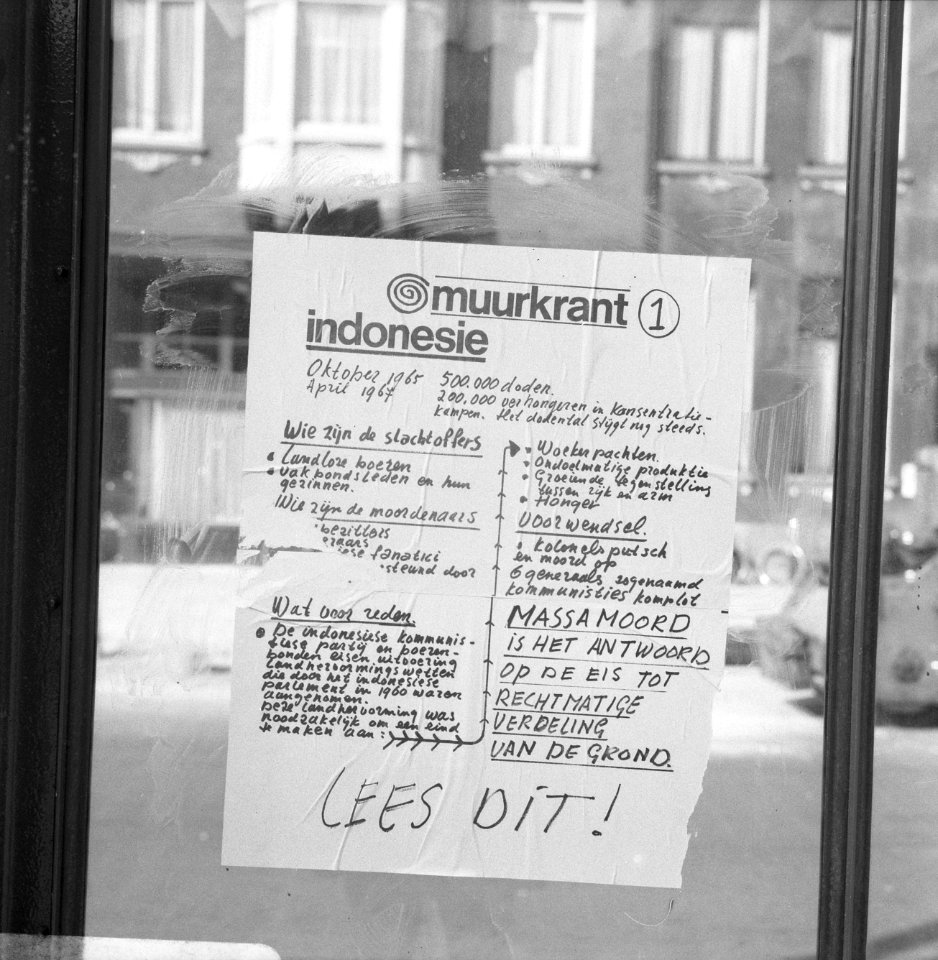 muurkrant 1
indonesie
Oktober 1965
April 1967
500.000 doden.
200.000 verhongeren in Konsentratie-
kampen. Het dodental stijgt nog steeds.
Wie zijn de slachtoffers
• Landloze boeren
• vakbondsleden en hun
gezinnen.
Wie zijn de moordenaars
bezitters
fanatici
steund door
Wat voor reden.
• De indonesiese kommunis-
tiese partij en boeren-
bonden eisen uitvoering
landhervormingswetten
die door het indonesiese
parlement in 1960 waren
aangenomen.
Deze landhervorming was
noodzakelijk om een eind
te maken aan:
• Woekerpachten.
• Ondoelmatige produktie
• Groeiende tegenstelling
tussen rijk en arm
• Honger
Voorwendsel.
• Kolonelsputsch
en moord op
6 generaals zogenaamd
kommunisties komplot
MASSAMOORD
IS HET ANTWOORD
OP DE EIS TOT
RECHTMATIGE
VERDELING
VAN DE GROND.
LEES DIT!